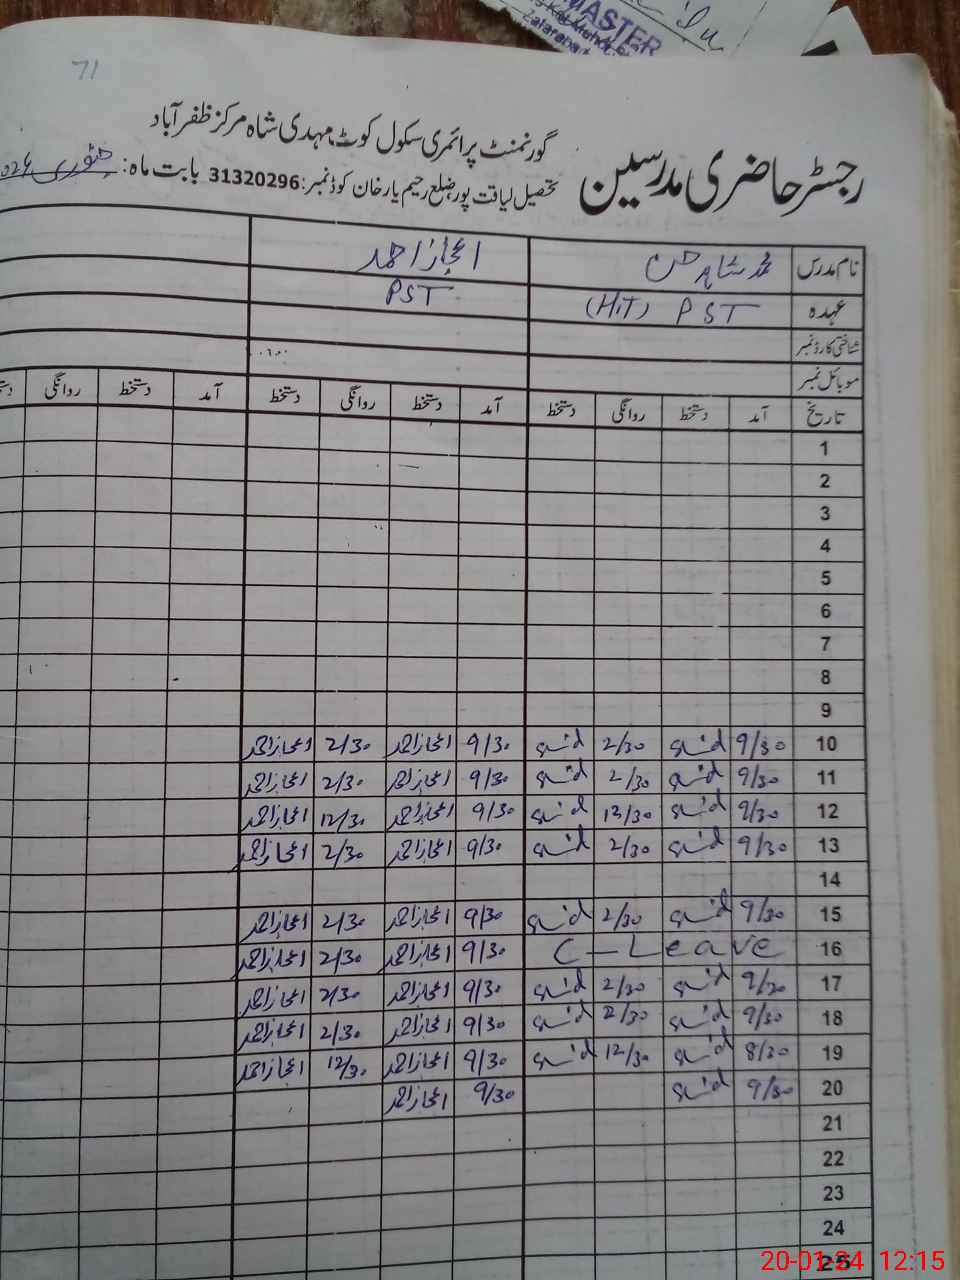 MASTER
71
گورنمنٹ پرائمری سکول کوٹ مہدی شاہ مرکز ظفر آباد
رجسٹر حاضری مدرسین
تحصیل لیاقت پور ضلع رحیم یار خان کوڈ نمبر: 31320296 بابت ماہ: جنوری
نام مدرس محمد شاہد حسن اعجاز احمد
عہدہ PST (H.T) PST
شناختی کارڈ نمبر
موبائل نمبر
تاریخ آمد دستخط روانگی دستخط آمد دستخط روانگی دستخط آمد دستخط روانگی
1
2
3
4
5
6
7
8
9
10 9/30 2/30 9/30 اعجاز احمد 2/30 اعجاز احمد
11 9/30 2/30 9/30 اعجاز احمد 2/30 اعجاز احمد
12 9/30 12/30 9/30 اعجاز احمد 12/30 اعجاز احمد
13 9/30 2/30 9/30 اعجاز احمد 2/30 اعجاز احمد
14
15 9/30 2/30 9/30 اعجاز احمد 2/30 اعجاز احمد
16 C-Leave 9/30 اعجاز احمد 2/30 اعجاز احمد
17 9/30 2/30 9/30 اعجاز احمد 2/30 اعجاز احمد
18 9/30 2/30 9/30 اعجاز احمد 2/30 اعجاز احمد
19 8/30 12/30 9/30 اعجاز احمد 12/30 اعجاز احمد
20 9/30 9/30 اعجاز احمد
21
22
23
24
25
20-01-24 12:15